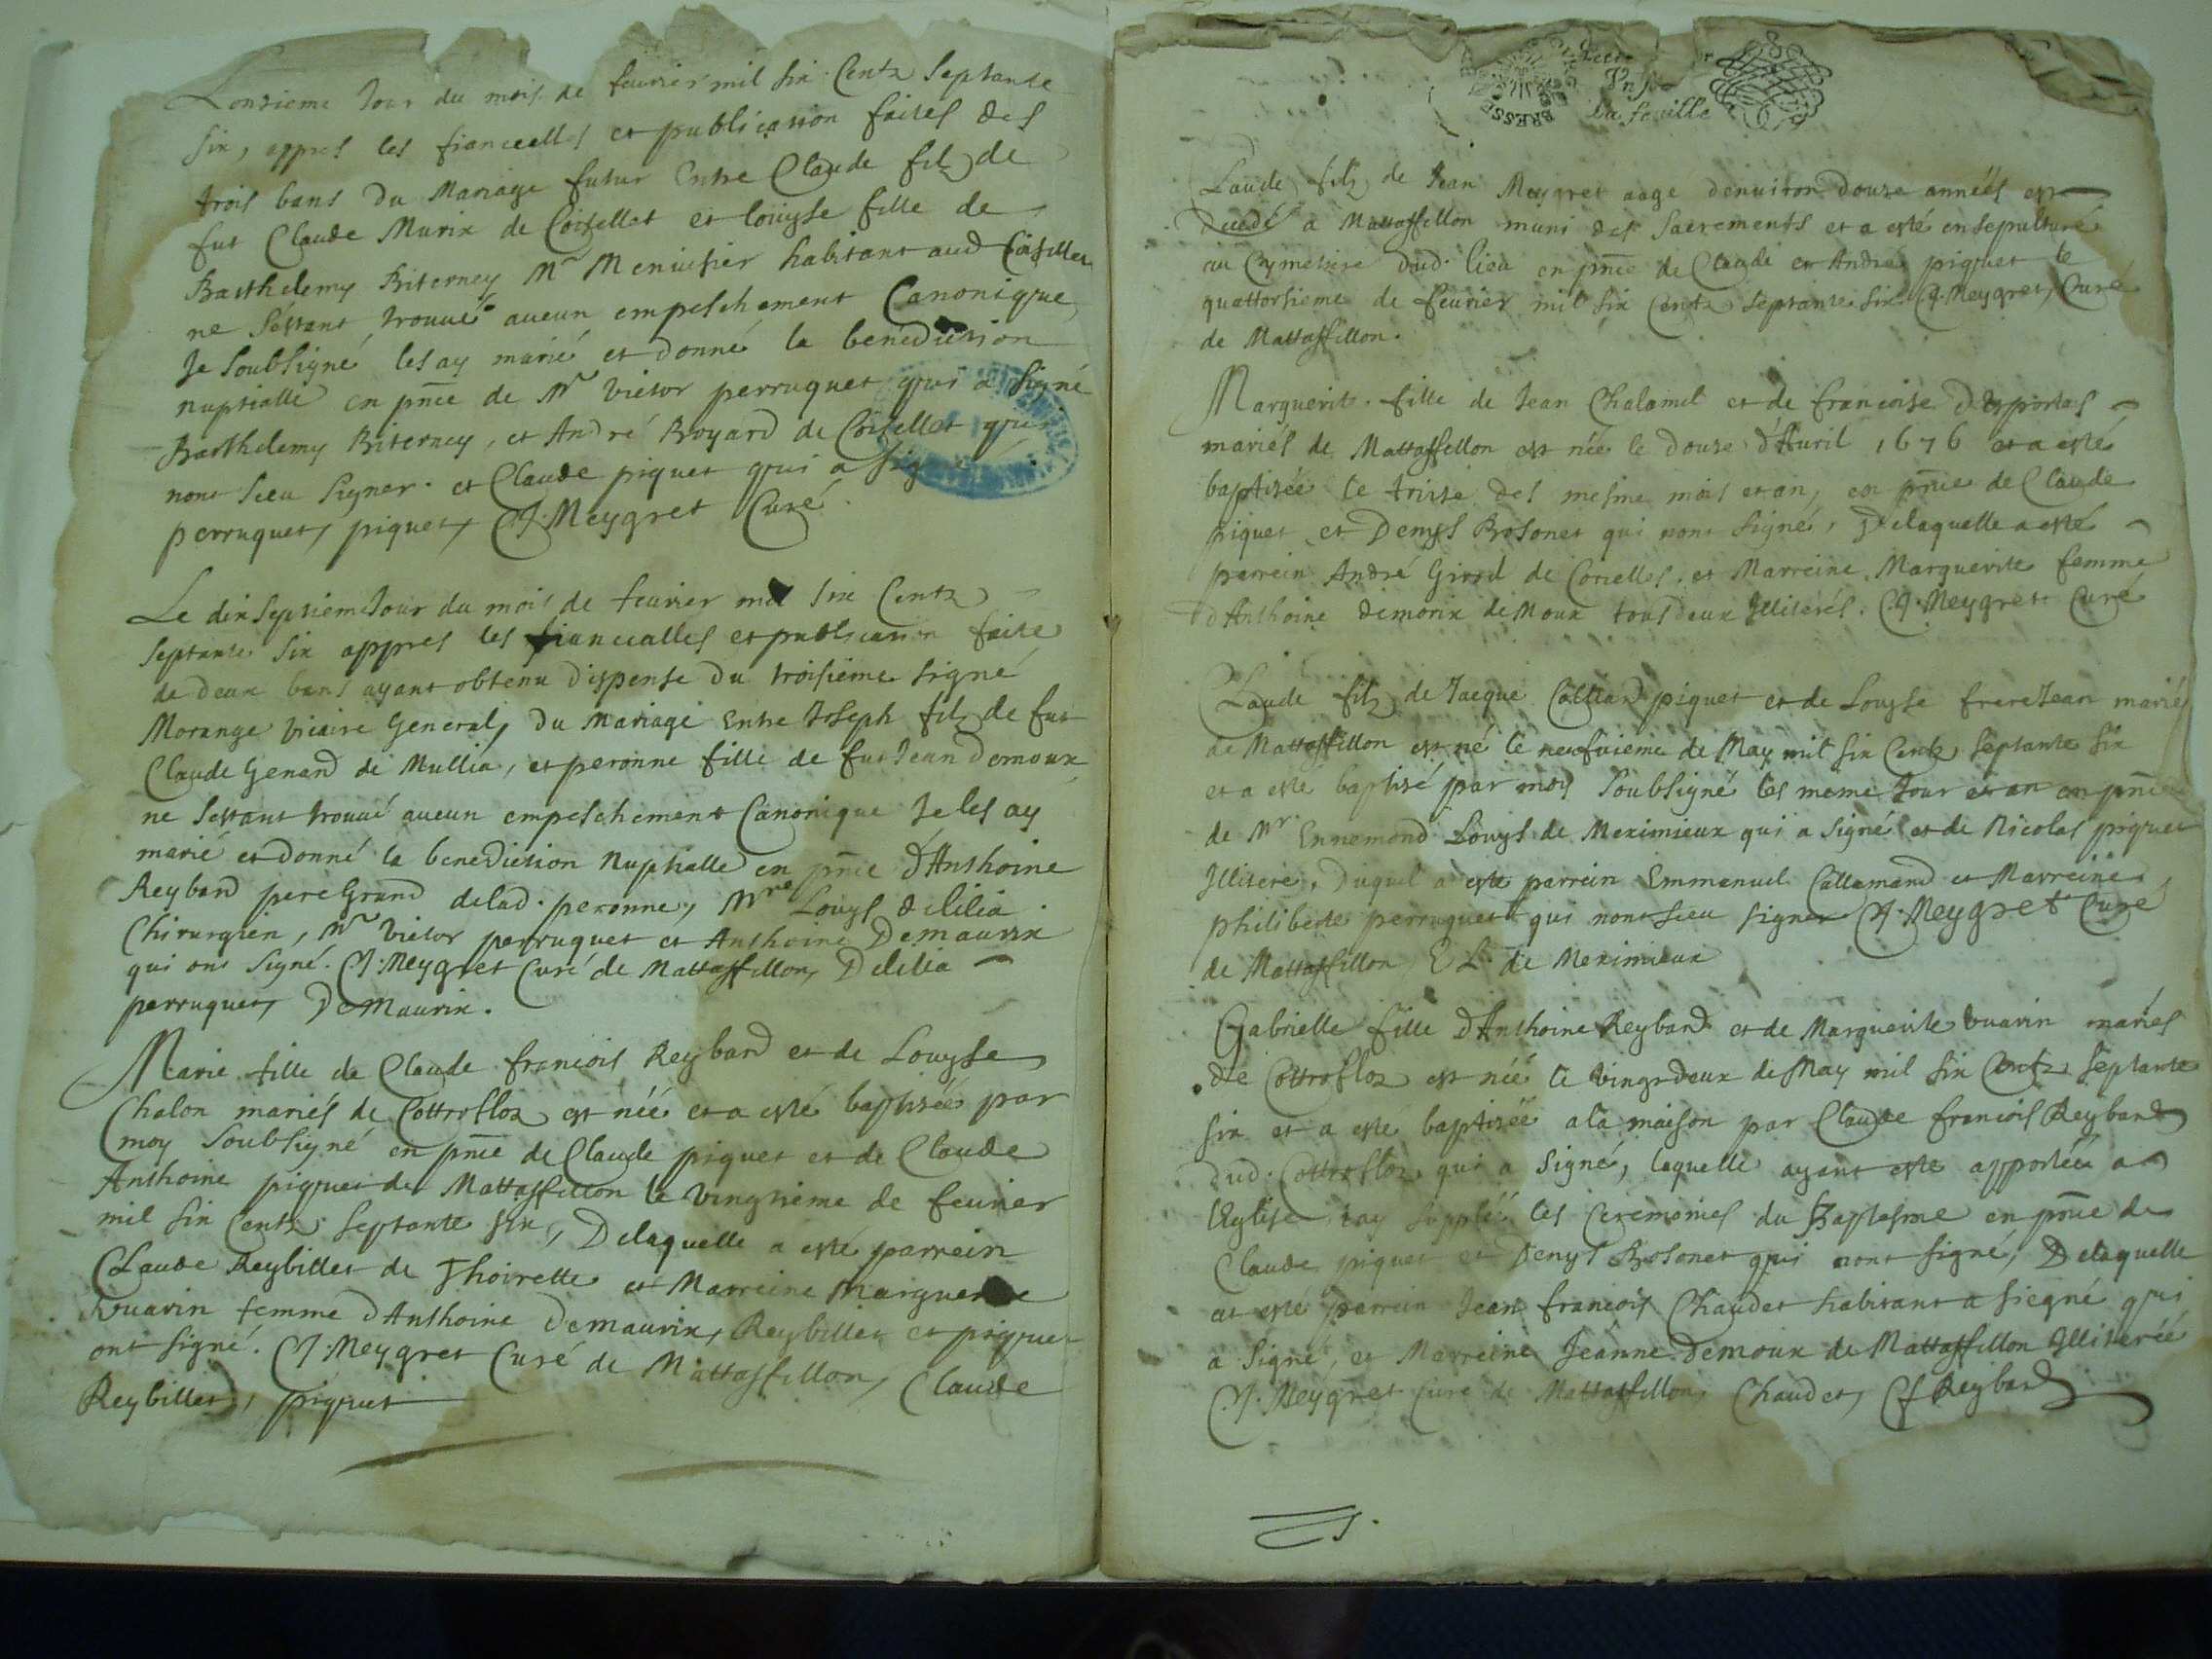 Lonzieme Jour du mois de feurier mil six Centz Septante
six, appres les fianceelles et publication faites des
trois bans du Mariage futur Entre Claude filz de
fut Claude Murix de Coisellet et loüyse fille de
Barthelemy Biterney Mr Menuisier habitant aud Coisellet
ne sestant trouué aucun empeschement Canonique
Je soubsigné les ay marié et donné la benediction
nuptialle en pnce de Mr Victor perruquet qui a signé
Barthelemy Biterney, et André Boyard de Coisellet qui
nont sceu signer. et Claude piquet qui a signé
perruquet, piquet, CJ. Meygret Curé.
Le dix septieme Jour du mois de feurier mil six Centz
septante six appres les fiancealles et publication faite
de deux bans ayant obtenu dispense du troisieme signé
Morange Vicaire General, du Mariage Entre Joseph filz de fut
Claude Genard de Mullia, et peronne fille de fut Jean Demoux
ne sestant trouué aucun empeschement Canonique Je les ay
marié et donné la benediction Nuptialle en pnce d'Anthoine
Reyband pere Grand delad. peronne, Mre Louys delilia
Chirurgien, Mr Victor perruquet et Anthoine Demaurix
qui ont signé. CJ. Meygret Curé de Mattaffellon, Delilia
perruquet, DeMaurix.
Marie fille de Claude francois Reyband et de Louyse
Chalon mariés de Cottrofloz est née et a esté baptisée par
moy Soubsigné en pnce de Claude piquet et de Claude
Anthoine piquet de Mattaffellon le vingtieme de feurier
mil six Centz septante six, Delaquelle a esté parrein
Claude Reybillet de Thoirette et Marreine Marguerite
Vuarin femme d'Anthoine Demaurix, Reybillet et piquet
ont signé. CJ. Meygret Curé de Mattaffellon, Claude
Reybillet, piquet
BRESSE
la feuille
Claude filz de Jean Meygret aage denuiron douze années est
Decedé a Mattaffellon muni des Sacrements et a esté ensepulturé
au Cymetiere dud. lieu en pnce de Claude et André piquet le
quattorsieme de feurier mil six Centz septante six CJ. Meygret, Curé
de Mattaffellon.
Marguerite fille de Jean Chalamel et de francoise Desportes
mariés de Mattaffellon est née le douze d'Auril 1676 et a esté
baptisée le treize des mesme mois et an, en pnce de Claude
piquet et Denys Bosonet qui nont signés, Delaquelle a esté
parrein André Girod de Corcelles, et Marreine Marguerite femme
d'Anthoine demorix de Moux tous deux Illiterés. CJ. Meygret Curé
Claude filz de Jacque Calliard piquet et de Louyse frereJean mariés
de Mattaffellon est né le neufuieme de May mil six Centz septante six
et a esté baptisé par moy soubsigné les meme Jour et an en pnce
de Mr Ennemond Louys de Meximieux qui a signé et de Nicolas piquet
Illiteré, Duquel a esté parrein Emmanuel Callamand et Marreine
philiberte perruquet qui nont sceu signer CJ. Meygret Curé
de Mattaffellon, E L. de Meximieux
Gabrielle fille d'Anthoine Reyband et de Marguerite Vuarin mariés
de Cottrofloz est née le vingtdeux de May mil six Centz septante
six et a esté baptisée a la maison par Claude francois Reyband
dud. Cottrofloz qui a signé, laquelle ayant esté apportée a
lEglise Jay supplée les Ceremonies du Baptesme en pnce de
Claude piquet et Denys Bosonet qui nont signé, Delaquelle
at esté parrein Jean francois Chaudet habitant a siegné qui
a signé, et Marreine Jeanne Demoux de Mattaffellon Illiterée
CJ. Meygret Curé de Mattaffellon, Chaudet, Cf Reyband